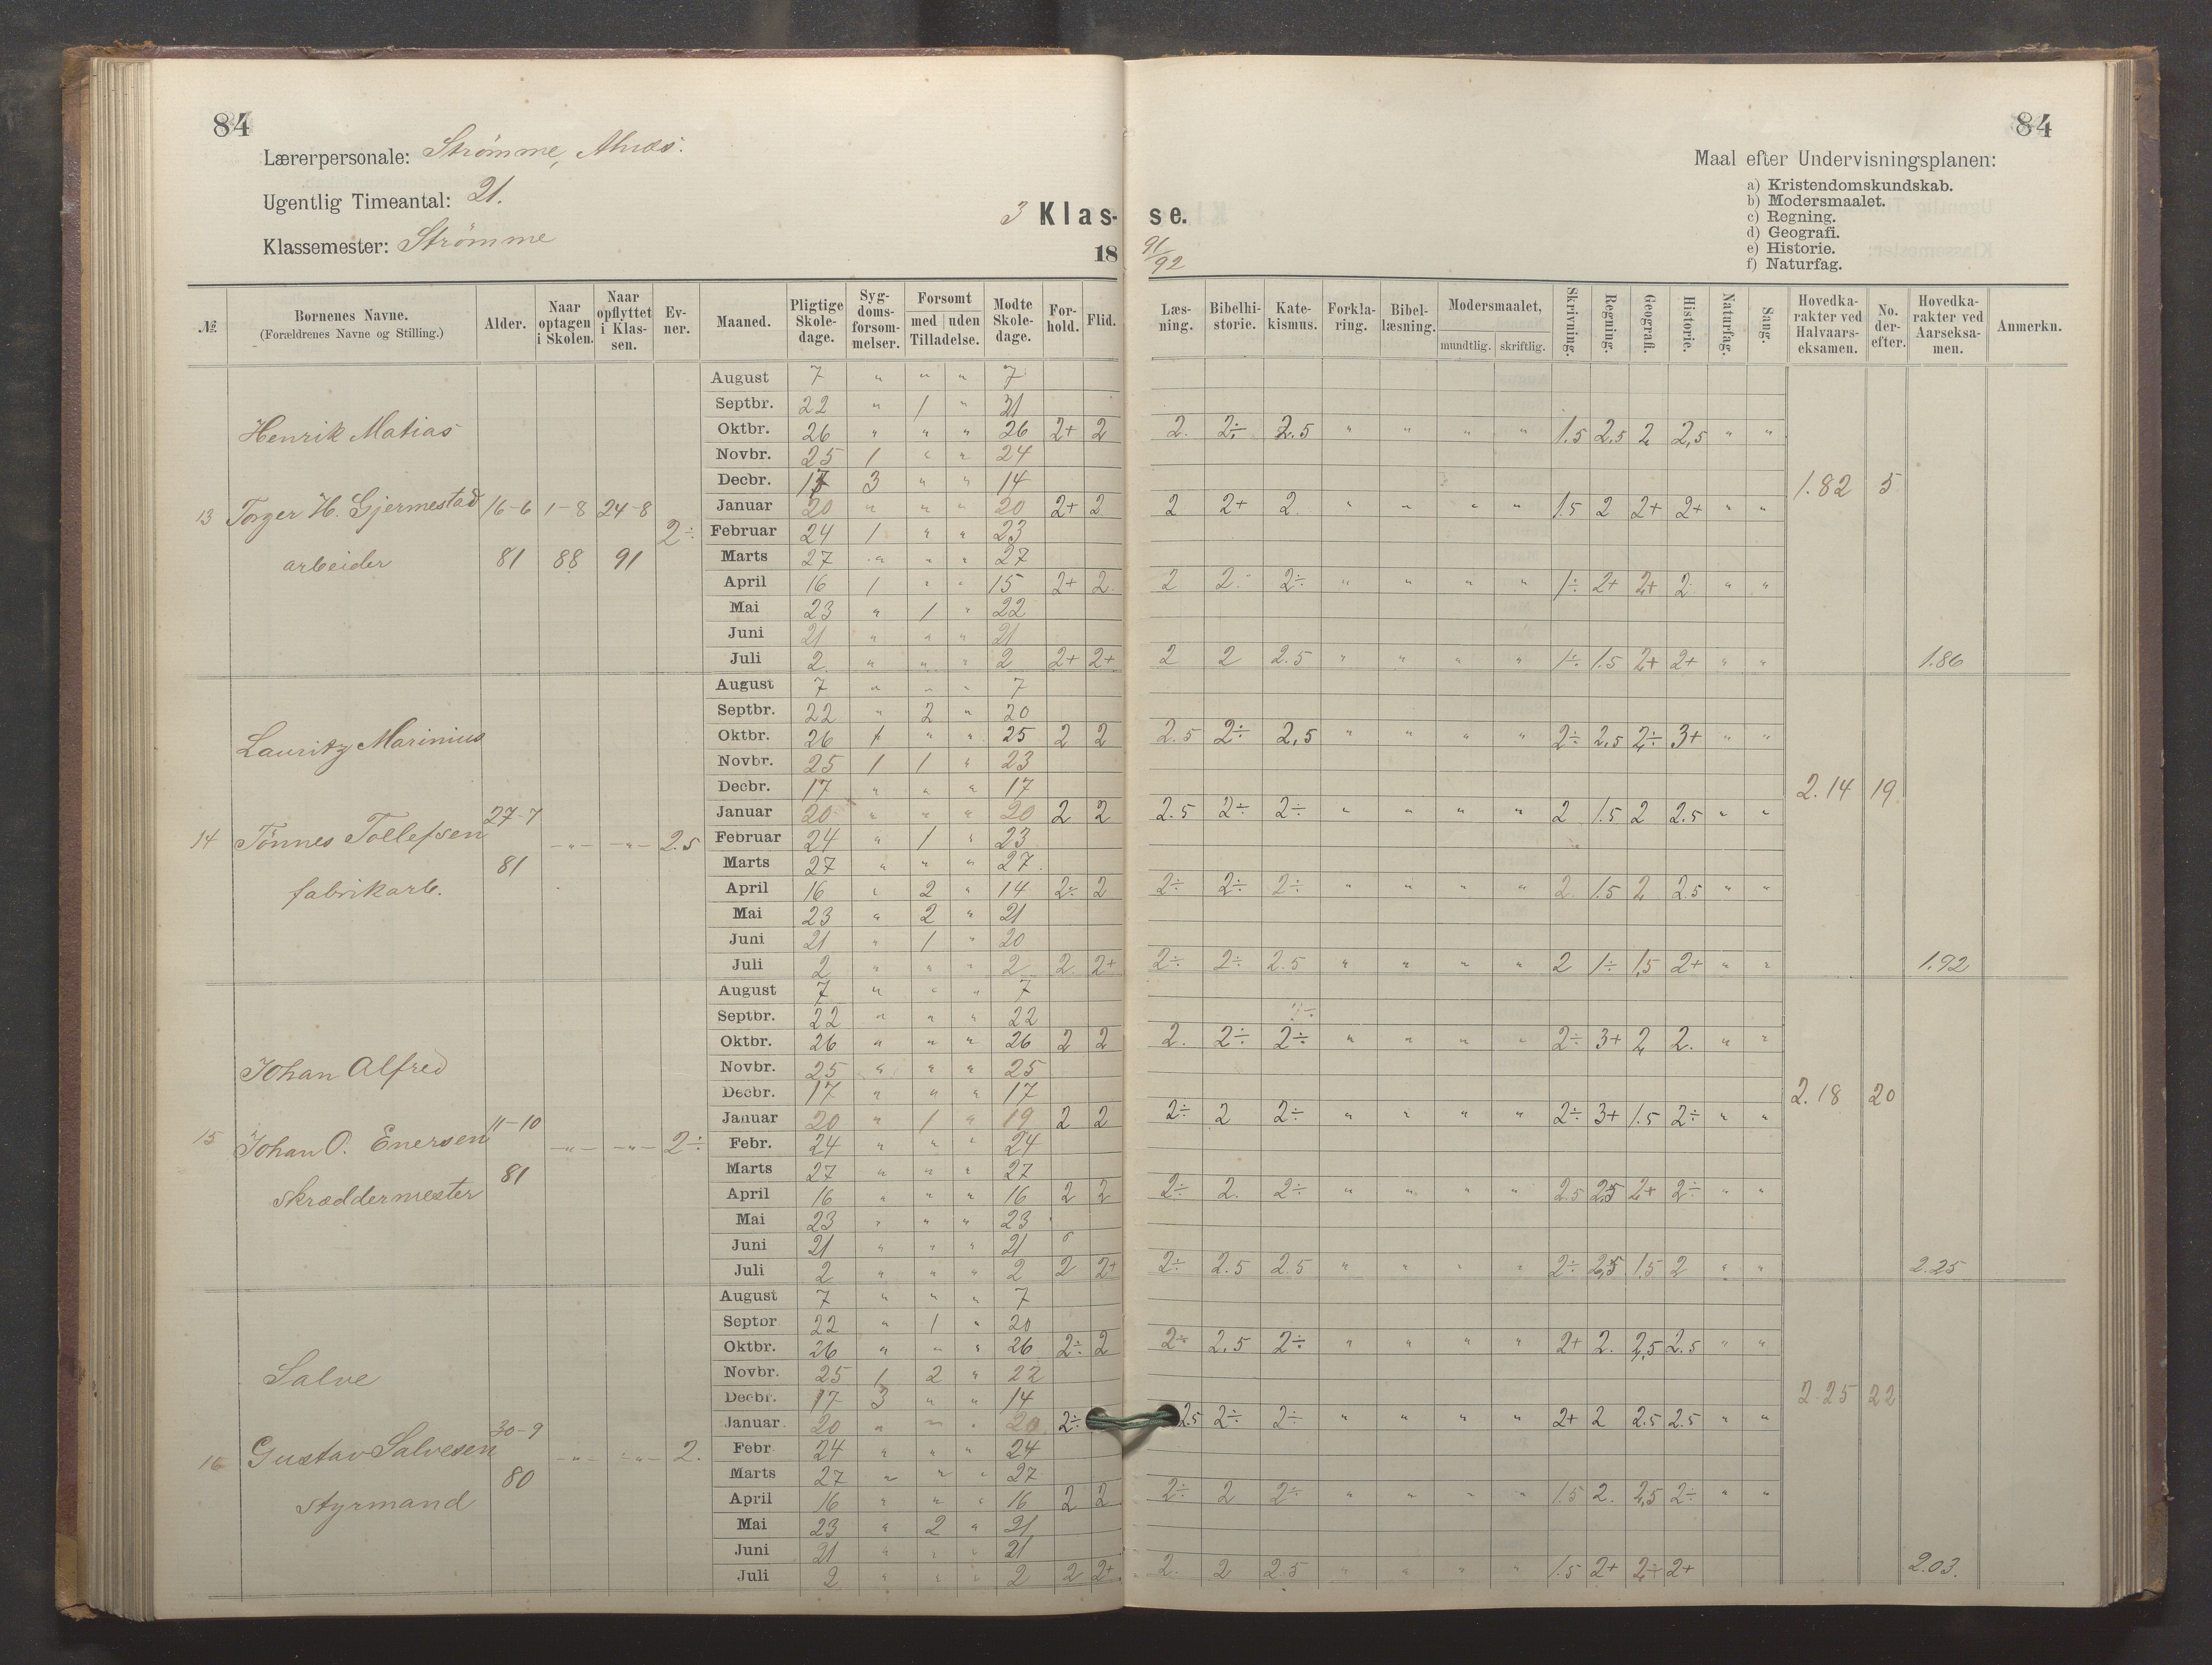 84
84
Lærerpersonale: Strömme, Alnæs.
Ugentlig Timeantal: 21.
Klassemester: Strömme
3 Klas-se.
18 91/92
Maal efter Undervisningsplanen:
a) Kristendomskundskab.
b) Modersmaalet.
c) Regning.
d) Geografi.
e) Historie.
f) Naturfag.
№ Bornenes Navne. (Forældrenes Navne og Stilling.) Alder. Naar optagen i Skolen. Naar opflyttet i Klassen. Evner. Maaned. Pligtige Skoledage. Sygdomsforsømmelser. Forsømt med uden Tilladelse. Mødte Skoledage. Forhold. Flid. Læsning. Bibelhistorie. Katekismus. Forklaring. Bibellæsning. Modersmaalet, mundtlig. skriftlig. Skrivning. Regning. Geografi. Historie. Naturfag. Sang. Hovedkarakter ved Halvaarseksamen. No. derefter. Hovedkarakter ved Aarseksamen. Anmerkn.
13 Henrik Matias
Torger H. Gjermestad
arbeider
16-6 81 1-8 88 24-8 91 2÷
August 7 " " " 7
Septbr. 22 " 1 " 21
Oktbr. 26 " " " 26 2+ 2 2. 2÷ 2.5 " " " " 1.5 2,5 2 2,5 " "
Novbr. 25 1 " " 24
Decbr. 17 3 " " 14 1.82 5
Januar 20 " " " 20 2+ 2 2 2+ 2 " " " " 1.5 2 2+ 2+ " "
Februar 24 1 " " 23
Marts 27 " " " 27
April 16 1 " " 15 2+ 2 2 2 2÷ " " " " 1÷ 2+ 2+ 2 " "
Mai 23 " 1 " 22
Juni 21 " " " 21
Juli 2 " " " 2 2+ 2+ 2 2 2.5 " " " " 1÷ 1.5 2+ 2+ " " 1.86
14 Lauritz Marinius
Tönnes Tollefsen
fabrikarb.
27-7 81 -"- -"- 2.5
August 7 " " " 7
Septbr. 22 " 2 " 20
Oktbr. 26 1 " " 25 2 2 2.5 2÷ 2,5 " " " " 2÷ 2,5 2÷ 3+ " "
Novbr. 25 1 1 " 23
Decbr. 17 " " " 17 2.14 19
Januar 20 " " " 20 2 2 2.5 2÷ 2÷ " " " " 2 1.5 2 2.5 " "
Februar 24 " 1 " 23
Marts 27 " " " 27
April 16 " 2 " 14 2÷ 2 2÷ 2÷ 2÷ " " " " 2. 1.5 2 2.5 " "
Mai 23 " 2 " 21
Juni 21 " 1 " 20
Juli 2 " " " 2 2 2+ 2÷ 2÷ 2.5 " " " " 2 1÷ 1,5 2+ " " 1.92
15 Johan Alfred
Johan O. Enersen
skræddermester
11-10 81 -"- -"- 2÷
August 7 " " " 7
Septbr. 22 " " " 22
Oktbr. 26 " " " 26 2 2 2. 2÷ 2÷ " " " " 2÷ 3+ 2 2. " "
Novbr. 25 " " " 25
Decbr. 17 " " " 17 2.18 20
Januar 20 " 1 " 19 2 2 2÷ 2 2÷ " " " " 2÷ 3+ 1.5 2÷ " "
Febr. 24 " " " 24
Marts 27 " " " 27
April 16 " " " 16 2 2 2÷ 2. 2÷ " " " " 2.5 2,5 2+ 2÷ " "
Mai 23 " " " 23
Juni 21 " " " 21
Juli 2 " " " 2 2 2+ 2÷ 2.5 2.5 " " " " 2÷ 2,5 1.5 2 " " 2.25
16 Salve
Gustav Salvesen
styrmand
30-9 80 -"- -"- 2.
August 7 " " " 7
Septor 22 " 1 " 20
Oktbr. 26 " " " 26 2÷ 2 2÷ 2.5 2÷ " " " " 2+ 2. 2,5 2.5 " "
Novbr. 25 1 2 " 22
Decbr. 17 3 " " 14 2.25 22
Januar 20 " " " 20 2÷ 2.5 2÷ 2÷ " " " " 2+ 2 2.5 2.5 " "
Febr 24 " " " 24
Marts 27 " " " 27
April 16 " " " 16 2 2 2÷ 2 2÷ " " " " 1.5 2. 2,5 2÷ " "
Mai 23 " 2 " 21
Juni 21 " " " 21
Juli 2 " " " 2 2 2+ 2. 2 2.5 " " " " 1.5 2+ 2÷ 2+ 2.03.